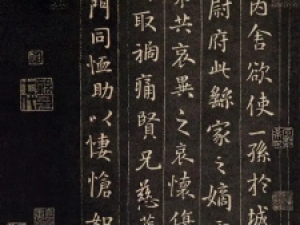 內舍欲使一孫於城
尉府此繇家之嫡正
共哀異之哀懷傷
取禍痛賢兄慈篤
門同恤助以悽愴如